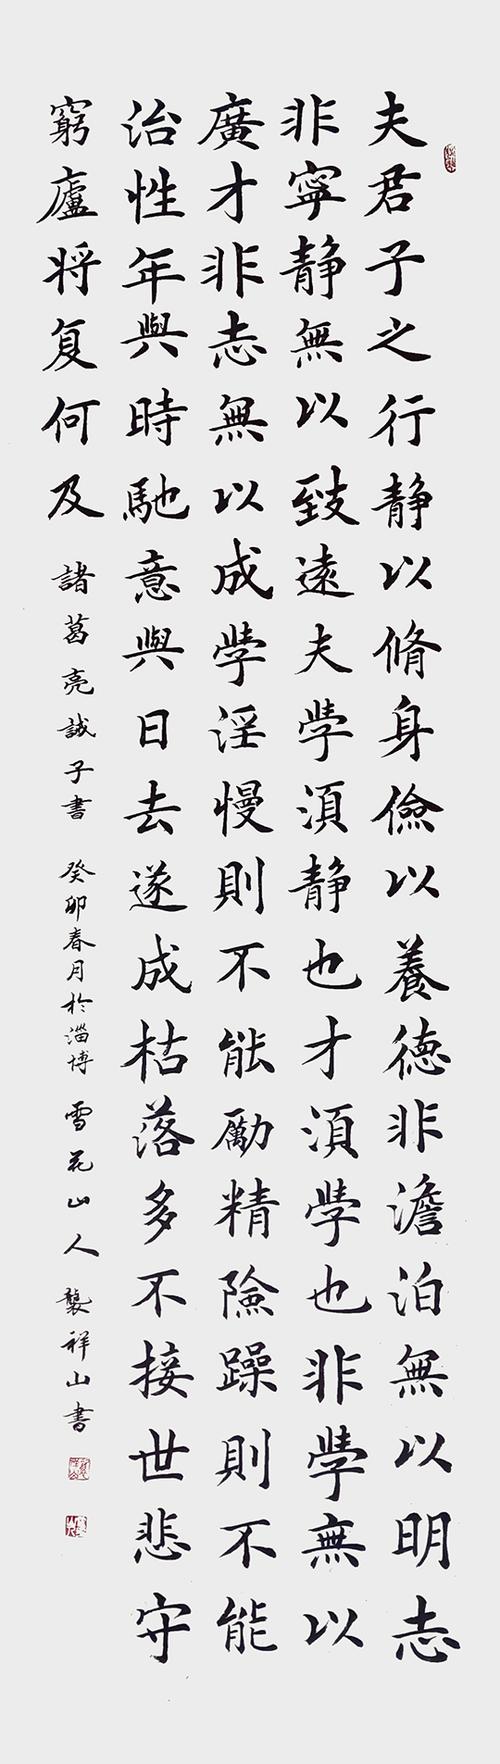 夫君子之行静以脩身儉以養德非澹泊無以明志
非寧静無以致遠夫學須静也才須學也非學無以
廣才非志無以成學淫慢則不能勵精險躁則不能
治性年與時馳意與日去遂成枯落多不接世悲守
窮廬将复何及
諸葛亮誡子書 癸卯春月於淄博 雪花山人 龔祥山書